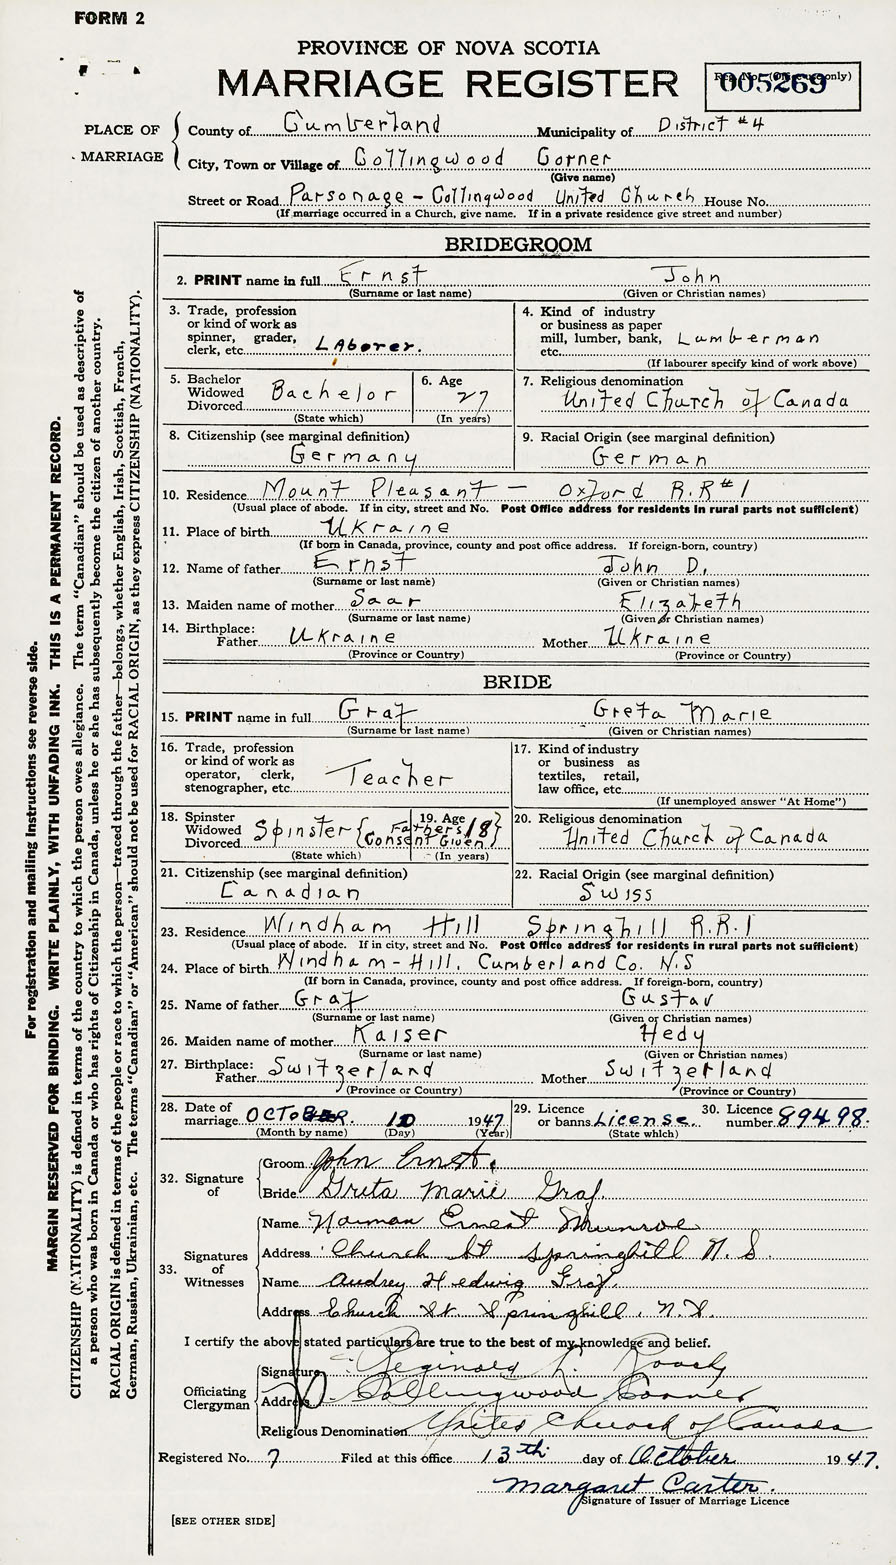 FORM 2
PROVINCE OF NOVA SCOTIA
MARRIAGE REGISTER
Reg. No. (Office use only)
005269
PLACE OF MARRIAGE
County of Cumberland Municipality of District #4
City, Town or Village of Collingwood Corner
(Give name)
Street or Road Parsonage - Collingwood United Church House No.
(If marriage occurred in a Church, give name. If in a private residence give street and number)
BRIDEGROOM
2. PRINT name in full Ernst John
(Surname or last name) (Given or Christian names)
3. Trade, profession or kind of work as spinner, grader, clerk, etc. LAborer.
4. Kind of industry or business as paper mill, lumber, bank, etc. Lumberman
(If labourer specify kind of work above)
5. Bachelor Widowed Divorced Bachelor
(State which)
6. Age 27
(In years)
7. Religious denomination
United Church of Canada
8. Citizenship (see marginal definition)
Germany
9. Racial Origin (see marginal definition)
German
10. Residence Mount Pleasant - Oxford R.R #1
(Usual place of abode. If in city, street and No. Post Office address for residents in rural parts not sufficient)
11. Place of birth Ukraine
(If born in Canada, province, county and post office address. If foreign-born, country)
12. Name of father Ernst John D.
(Surname or last name) (Given or Christian names)
13. Maiden name of mother Saar Elizabeth
(Surname or last name) (Given or Christian names)
14. Birthplace: Father Ukraine Mother Ukraine
(Province or Country) (Province or Country)
BRIDE
15. PRINT name in full Graf Greta Marie
(Surname or last name) (Given or Christian names)
16. Trade, profession or kind of work as operator, clerk, stenographer, etc. Teacher
17. Kind of industry or business as textiles, retail, law office, etc.
(If unemployed answer "At Home")
18. Spinster Widowed Divorced Spinster {Fathers Consent Given}
(State which)
19. Age 18
(In years)
20. Religious denomination
United Church of Canada
21. Citizenship (see marginal definition)
Canadian
22. Racial Origin (see marginal definition)
Swiss
23. Residence Windham Hill Springhill R.R.1
(Usual place of abode. If in city, street and No. Post Office address for residents in rural parts not sufficient)
24. Place of birth Windham-Hill, Cumberland Co. N.S
(If born in Canada, province, county and post office address. If foreign-born, country)
25. Name of father Graf Gustav
(Surname or last name) (Given or Christian names)
26. Maiden name of mother Kaiser Hedy
(Surname or last name) (Given or Christian names)
27. Birthplace: Father Switzerland Mother Switzerland
(Province or Country) (Province or Country)
28. Date of marriage OCTOBER. 10 1947
(Month by name) (Day) (Year)
29. Licence or banns License.
(State which)
30. Licence number 89498.
32. Signature of
Groom John Ernst.
Bride Greta Marie Graf.
33. Signatures of Witnesses
Name Norman Ernest Munroe
Address Church St Springhill N.S.
Name Audrey Hedwig Graf.
Address Church St. Springhill, N.S.
I certify the above stated particulars are true to the best of my knowledge and belief.
Officiating Clergyman
Signature Reginald
Address Collingwood Corner
Religious Denomination United Church of Canada
Registered No. 7 Filed at this office 13th day of October 1947.
Margaret Carter.
Signature of Issuer of Marriage Licence
[SEE OTHER SIDE]
For registration and mailing instructions see reverse side.
MARGIN RESERVED FOR BINDING. WRITE PLAINLY, WITH UNFADING INK. THIS IS A PERMANENT RECORD.
CITIZENSHIP (NATIONALITY) is defined in terms of the country to which the person owes allegiance. The term "Canadian" should be used as descriptive of
a person who was born in Canada or who has rights of Citizenship in Canada, unless he or she has subsequently become the citizen of another country.
RACIAL ORIGIN is defined in terms of the people or race to which the person—traced through the father—belongs, whether English, Irish, Scottish, French,
German, Russian, Ukrainian, etc. The terms "Canadian" or "American" should not be used for RACIAL ORIGIN, as they express CITIZENSHIP (NATIONALITY).